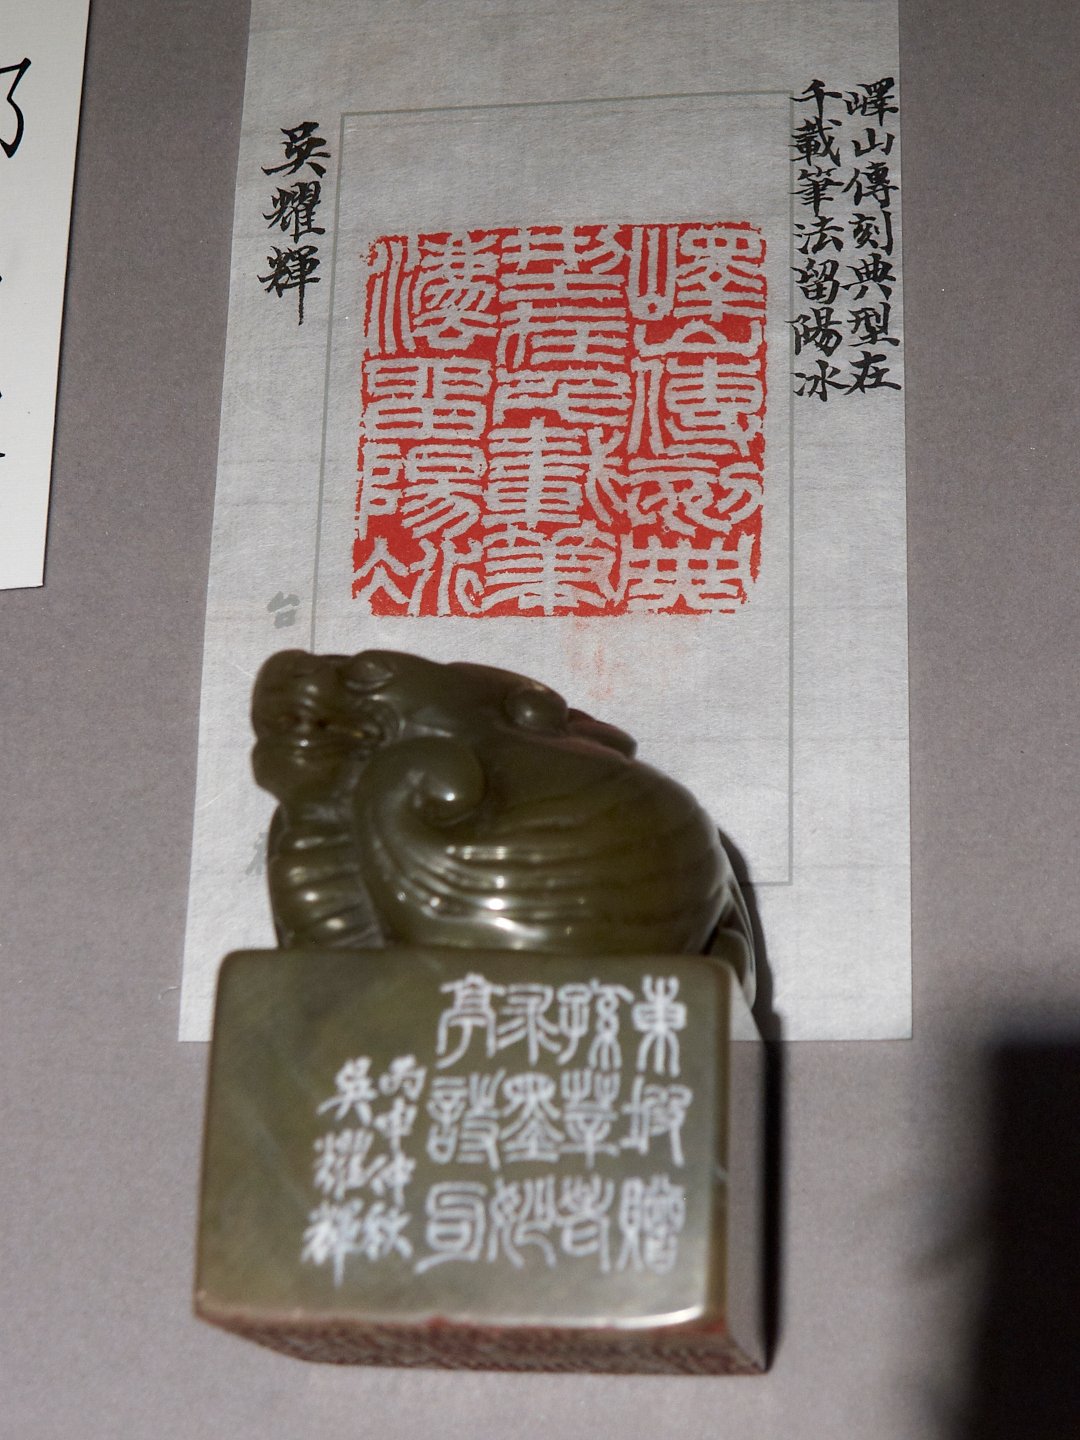 嶧山傳刻典型在
千載筆法留陽冰
嶧山傳刻典
型在千載筆
灋留陽冰
吳耀輝
台
東坡贈
孫莘老
求墨妙
亭詩句
丙申仲秋
吳耀輝